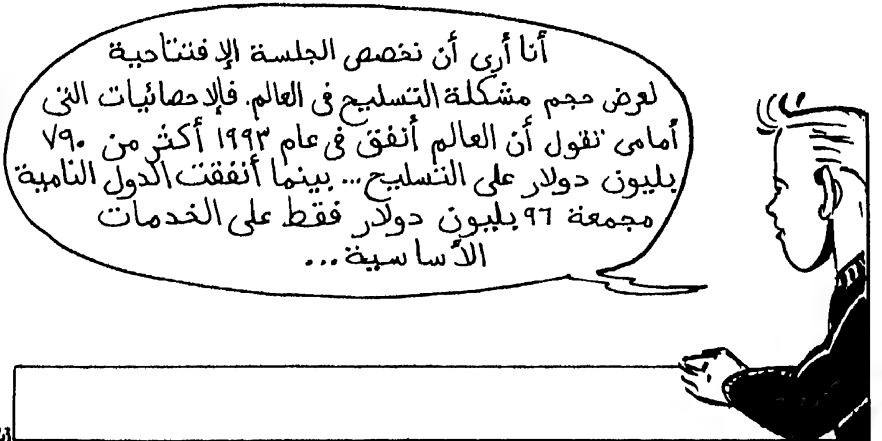 أنا أرى أن نخصص الجلسة الإفتتاحية
لعرض حجم مشكلة التسليح فى العالم. فالاحصائيات التى
أمامى تقول أن العالم أنفق فى عام ١٩٩٣ أكثر من ٧٩٠
بليون دولار على التسليح... بينما أنفقت الدول النامية
مجمعة ٩٦ بليون دولار فقط على الخدمات
الأساسية...